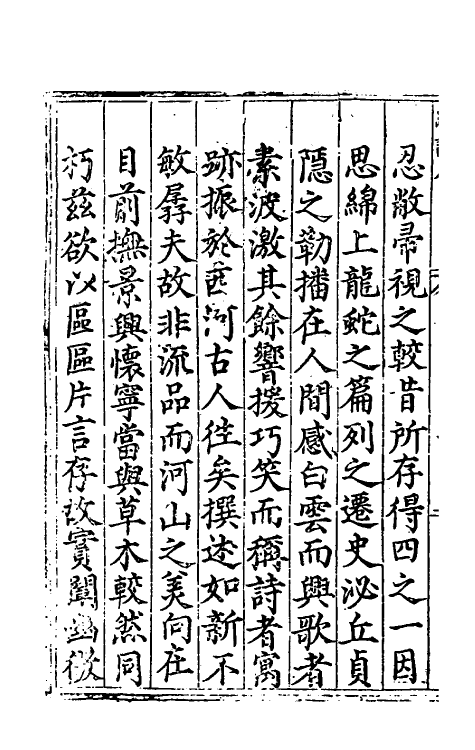 忍敝帚視之較昔所存得四之一因
思綿上龍蛇之篇列之遷史泌丘貞
隱之勒播在人間感白雲而興歌者
素波激其餘響援巧笑而稱詩者寓
跡振於西河古人徃矣撰述如新不
敏孱夫故非流品而河山之美向在
目前撫景興懷寧當與草木較然同
朽茲欲以區區片言存故實闡幽微